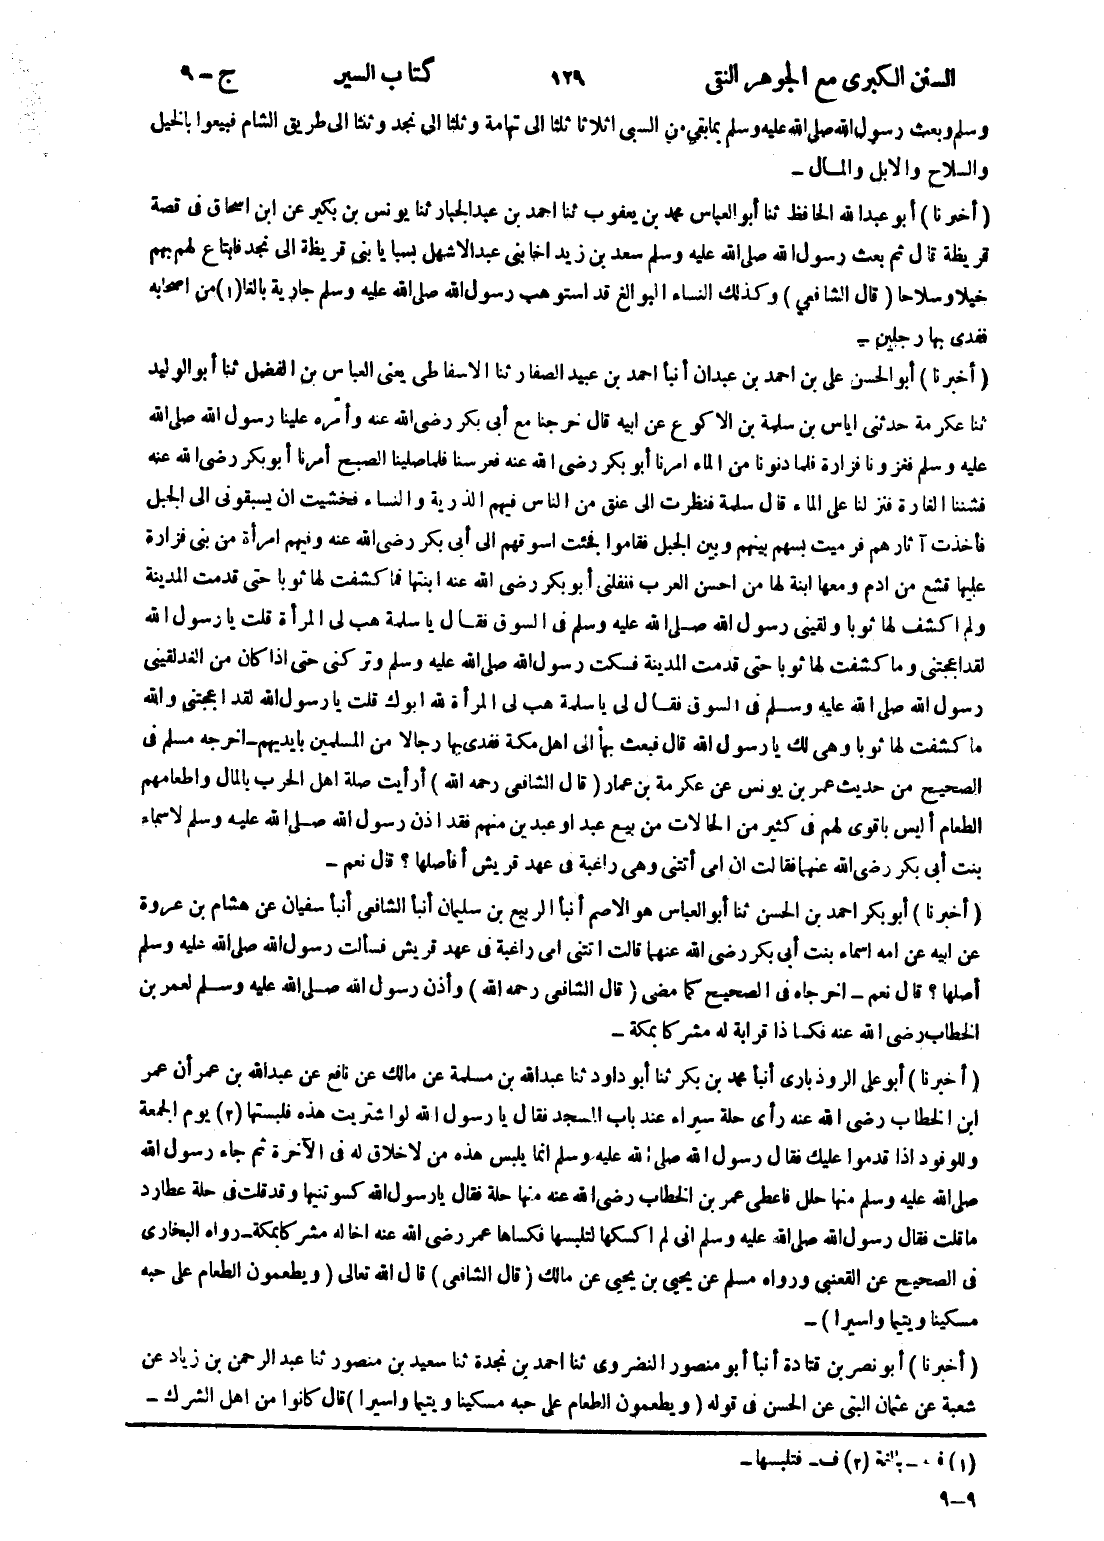 السنن الكبرى مع الجوهر النقى ١٢٩ كتاب السير ج - ٩
وسلم وبعث رسول الله صلى الله عليه وسلم بما بقى من السبى اثلاثا ثلثا الى تهامة وثلثا الى نجد وثلثا الى طريق الشام فبيعوا بالخيل
والسلاح والابل والمال -
(أخبرنا) أبو عبد الله الحافظ ثنا أبو العباس محمد بن يعقوب ثنا احمد بن عبد الجبار ثنا يونس بن بكير عن ابن اسحاق فى قصة
قريظة قال ثم بعث رسول الله صلى الله عليه وسلم سعد بن زيد اخا بنى عبد الاشهل بسبايا بنى قريظة الى نجد فابتاع لهم بهم
خيلا وسلاحا (قال الشافعى) وكذلك النساء البوالغ قد استوهب رسول الله صلى الله عليه وسلم جارية بالغا (١) من اصحابه
ففدى بها رجلين -
(أخبرنا) أبو الحسن على بن احمد بن عبدان أنبأ احمد بن عبيد الصفار ثنا الاسفاطى يعنى العباس بن الفضل ثنا أبو الوليد
ثنا عكرمة حدثنى اياس بن سلمة بن الاكوع عن ابيه قال خرجنا مع أبى بكر رضى الله عنه وأمّره علينا رسول الله صلى الله
عليه وسلم فغزونا فزارة فلما دنونا من الماء امرنا أبو بكر رضى الله عنه فعرسنا فلما صلينا الصبح أمرنا أبو بكر رضى الله عنه
فشننا الغارة فنزلنا على الماء قال سلمة فنظرت الى عنق من الناس فيهم الذرية والنساء فخشيت ان يسبقونى الى الجبل
فأخذت آثارهم فرميت بسهم بينهم وبين الجبل فقاموا فجئت اسوقهم الى أبى بكر رضى الله عنه وفيهم امرأة من بنى فزارة
عليها قشع من ادم ومعها ابنة لها من احسن العرب فنفلنى أبو بكر رضى الله عنه ابنتها فما كشفت لها ثوبا حتى قدمت المدينة
ولم اكشف لها ثوبا ولقينى رسول الله صلى الله عليه وسلم فى السوق فقال يا سلمة هب لى المرأة قلت يا رسول الله
لقد اعجبتنى وما كشفت لها ثوبا حتى قدمت المدينة فسكت رسول الله صلى الله عليه وسلم وتركنى حتى اذا كان من الغد لقينى
رسول الله صلى الله عليه وسلم فى السوق فقال لى يا سلمة هب لى المرأة لله ابوك قلت يا رسول الله لقد اعجبتنى والله
ما كشفت لها ثوبا وهى لك يا رسول الله قال فبعث بها الى اهل مكة ففدى بها رجالا من المسلمين بايديهم - اخرجه مسلم فى
الصحيح من حديث عمر بن يونس عن عكرمة بن عمار (قال الشافعى رحمه الله) أرأيت صلة اهل الحرب بالمال واطعامهم
الطعام أليس باقوى لهم فى كثير من الحالات من بيع عبد او عبدين منهم فقد اذن رسول الله صلى الله عليه وسلم لاسماء
بنت أبى بكر رضى الله عنهما فقالت ان امى أتتنى وهى راغبة فى عهد قريش أفأصلها؟ قال نعم -
(أخبرنا) أبو بكر احمد بن الحسن ثنا أبو العباس هو الاصم أنبأ الربيع بن سليمان أنبأ الشافعى أنبأ سفيان عن هشام بن عروة
عن ابيه عن امه اسماء بنت أبى بكر رضى الله عنهما قالت اتتنى امى راغبة فى عهد قريش فسألت رسول الله صلى الله عليه وسلم
أصلها؟ قال نعم - اخرجاه فى الصحيح كما مضى (قال الشافعى رحمه الله) وأذن رسول الله صلى الله عليه وسلم لعمر بن
الخطاب رضى الله عنه فكسا ذا قرابة له مشركا بمكة -
(أخبرنا) أبو على الروذبارى أنبأ محمد بن بكر ثنا أبو داود ثنا عبد الله بن مسلمة عن مالك عن نافع عن عبد الله بن عمر أن عمر
ابن الخطاب رضى الله عنه رأى حلة سيراء عند باب المسجد فقال يا رسول الله لو اشتريت هذه فلبستها (٢) يوم الجمعة
وللوفود اذا قدموا عليك فقال رسول الله صلى الله عليه وسلم انما يلبس هذه من لا خلاق له فى الآخرة ثم جاء رسول الله
صلى الله عليه وسلم منها حلل فاعطى عمر بن الخطاب رضى الله عنه منها حلة فقال يا رسول الله كسوتنيها وقد قلت فى حلة عطارد
ما قلت فقال رسول الله صلى الله عليه وسلم انى لم اكسكها لتلبسها فكساها عمر رضى الله عنه اخا له مشركا بمكة - رواه البخارى
فى الصحيح عن القعنبى ورواه مسلم عن يحيى بن يحيى عن مالك (قال الشافعى) قال الله تعالى (ويطعمون الطعام على حبه
مسكينا ويتيما واسيرا) -
(أخبرنا) أبو نصر بن قتادة أنبأ أبو منصور النضروى ثنا احمد بن نجدة ثنا سعيد بن منصور ثنا عبد الرحمن بن زياد عن
شعبة عن عثمان البتى عن الحسن فى قوله (ويطعمون الطعام على حبه مسكينا ويتيما واسيرا) قال كانوا من اهل الشرك -
(١) ف - بالغة (٢) ف - فتلبسها -
٩-٩